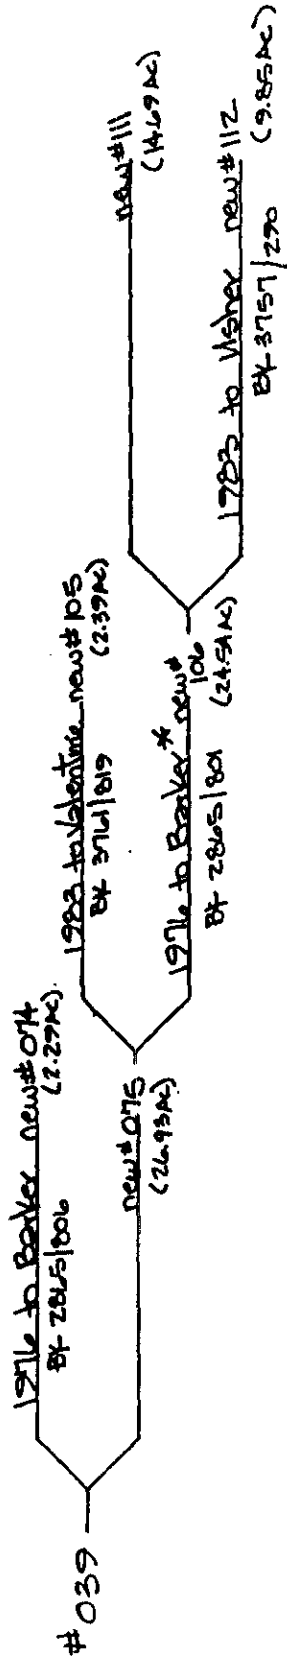 #039
1976 to Barker new#074
(2.29AC).
BK 2865/806
new#075
(26.93AC)
1983 to Valentine new#105
(2.39AC)
BK 3761/819
1976 to Barker* new#
106
(24.54AC)
BK 2865/801
new#111
(14.69AC)
1983 to Usher new#112
(9.85AC)
BK 3757/290